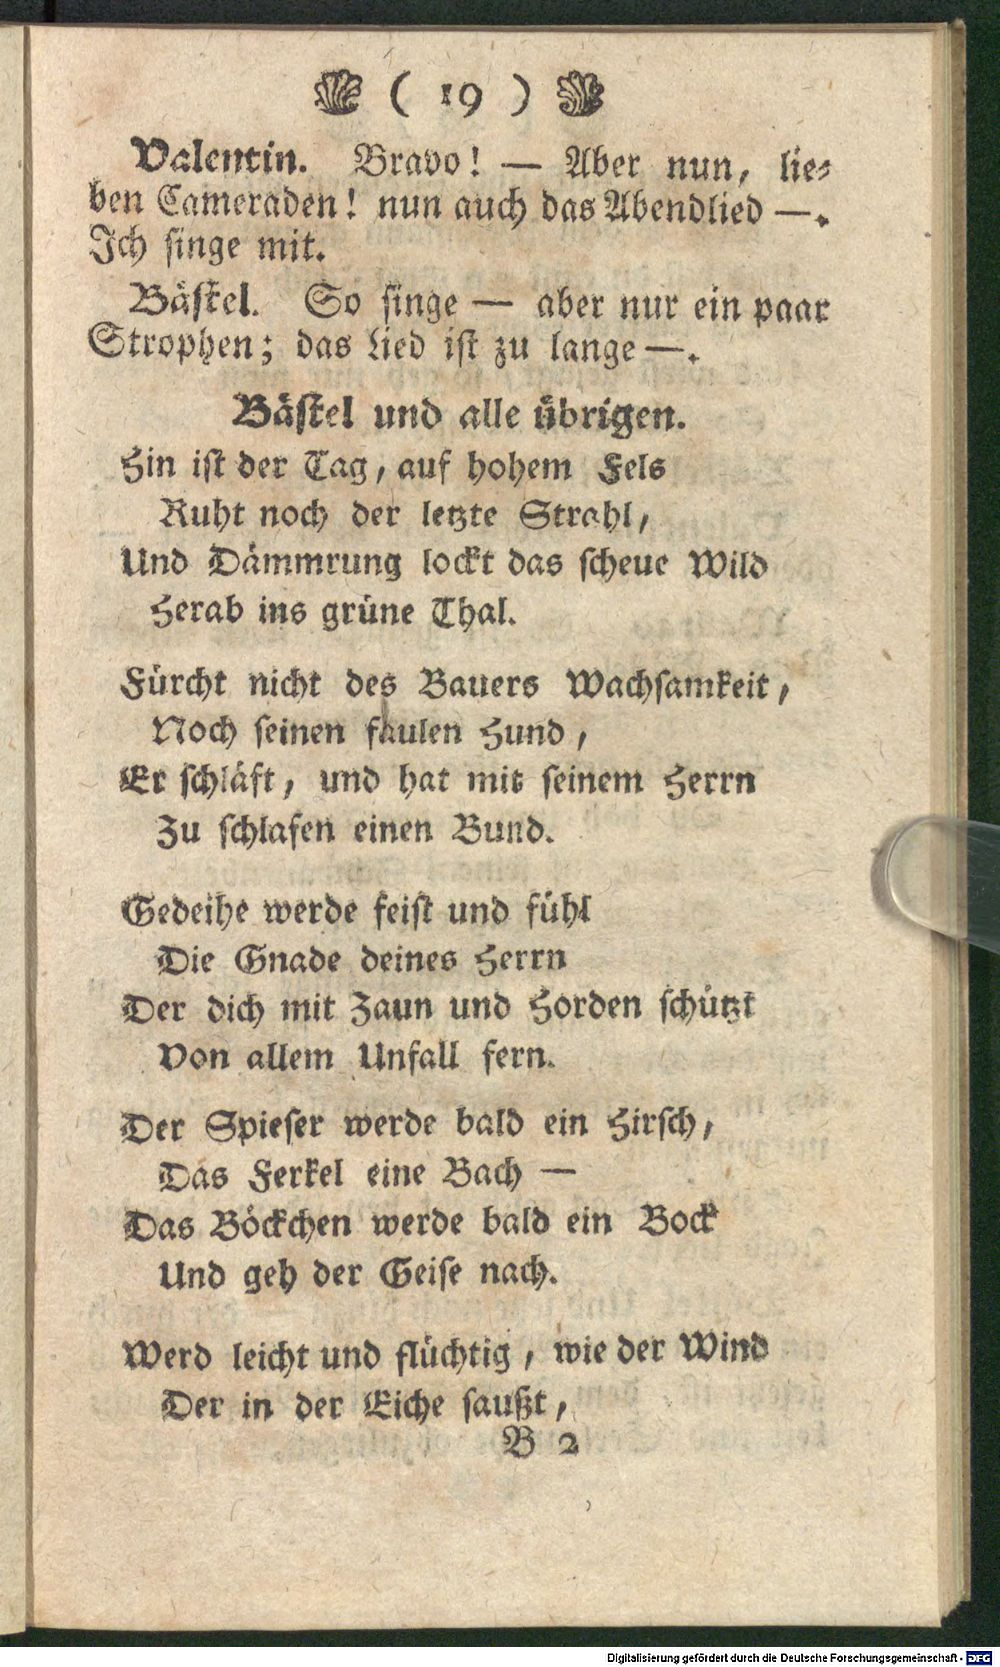 ( 19 )
Valentin. Bravo! — Aber nun, lie-
ben Cameraden! nun auch das Abendlied —.
Ich singe mit.
Bäſkel. So ſinge — aber nur ein paar
Strophen; das Lied iſt zu lange —.
Bäſkel und alle übrigen.
Hin iſt der Tag, auf hohem Fels
Ruht noch der letzte Strahl,
Und Dämmrung lockt das ſcheue Wild
Herab ins grüne Thal.
Fürcht nicht des Bauers Wachſamkeit,
Noch ſeinen faulen Hund,
Er ſchläft, und hat mit ſeinem Herrn
Zu ſchlafen einen Bund.
Gedeihe werde feiſt und fühl
Die Gnade deines Herrn
Der dich mit Zaun und Horden ſchützt
Von allem Unfall fern.
Der Spieſer werde bald ein Hirſch,
Das Ferkel eine Bach —
Das Böckchen werde bald ein Bock
Und geh der Geiſe nach.
Werd leicht und flüchtig, wie der Wind
Der in der Eiche ſaußt,
B 2
Digitalisierung gefördert durch die Deutsche Forschungsgemeinschaft - DFG